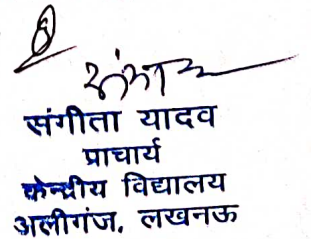 संगीता यादव
प्राचार्य
केन्द्रीय विद्यालय
अलीगंज, लखनऊ